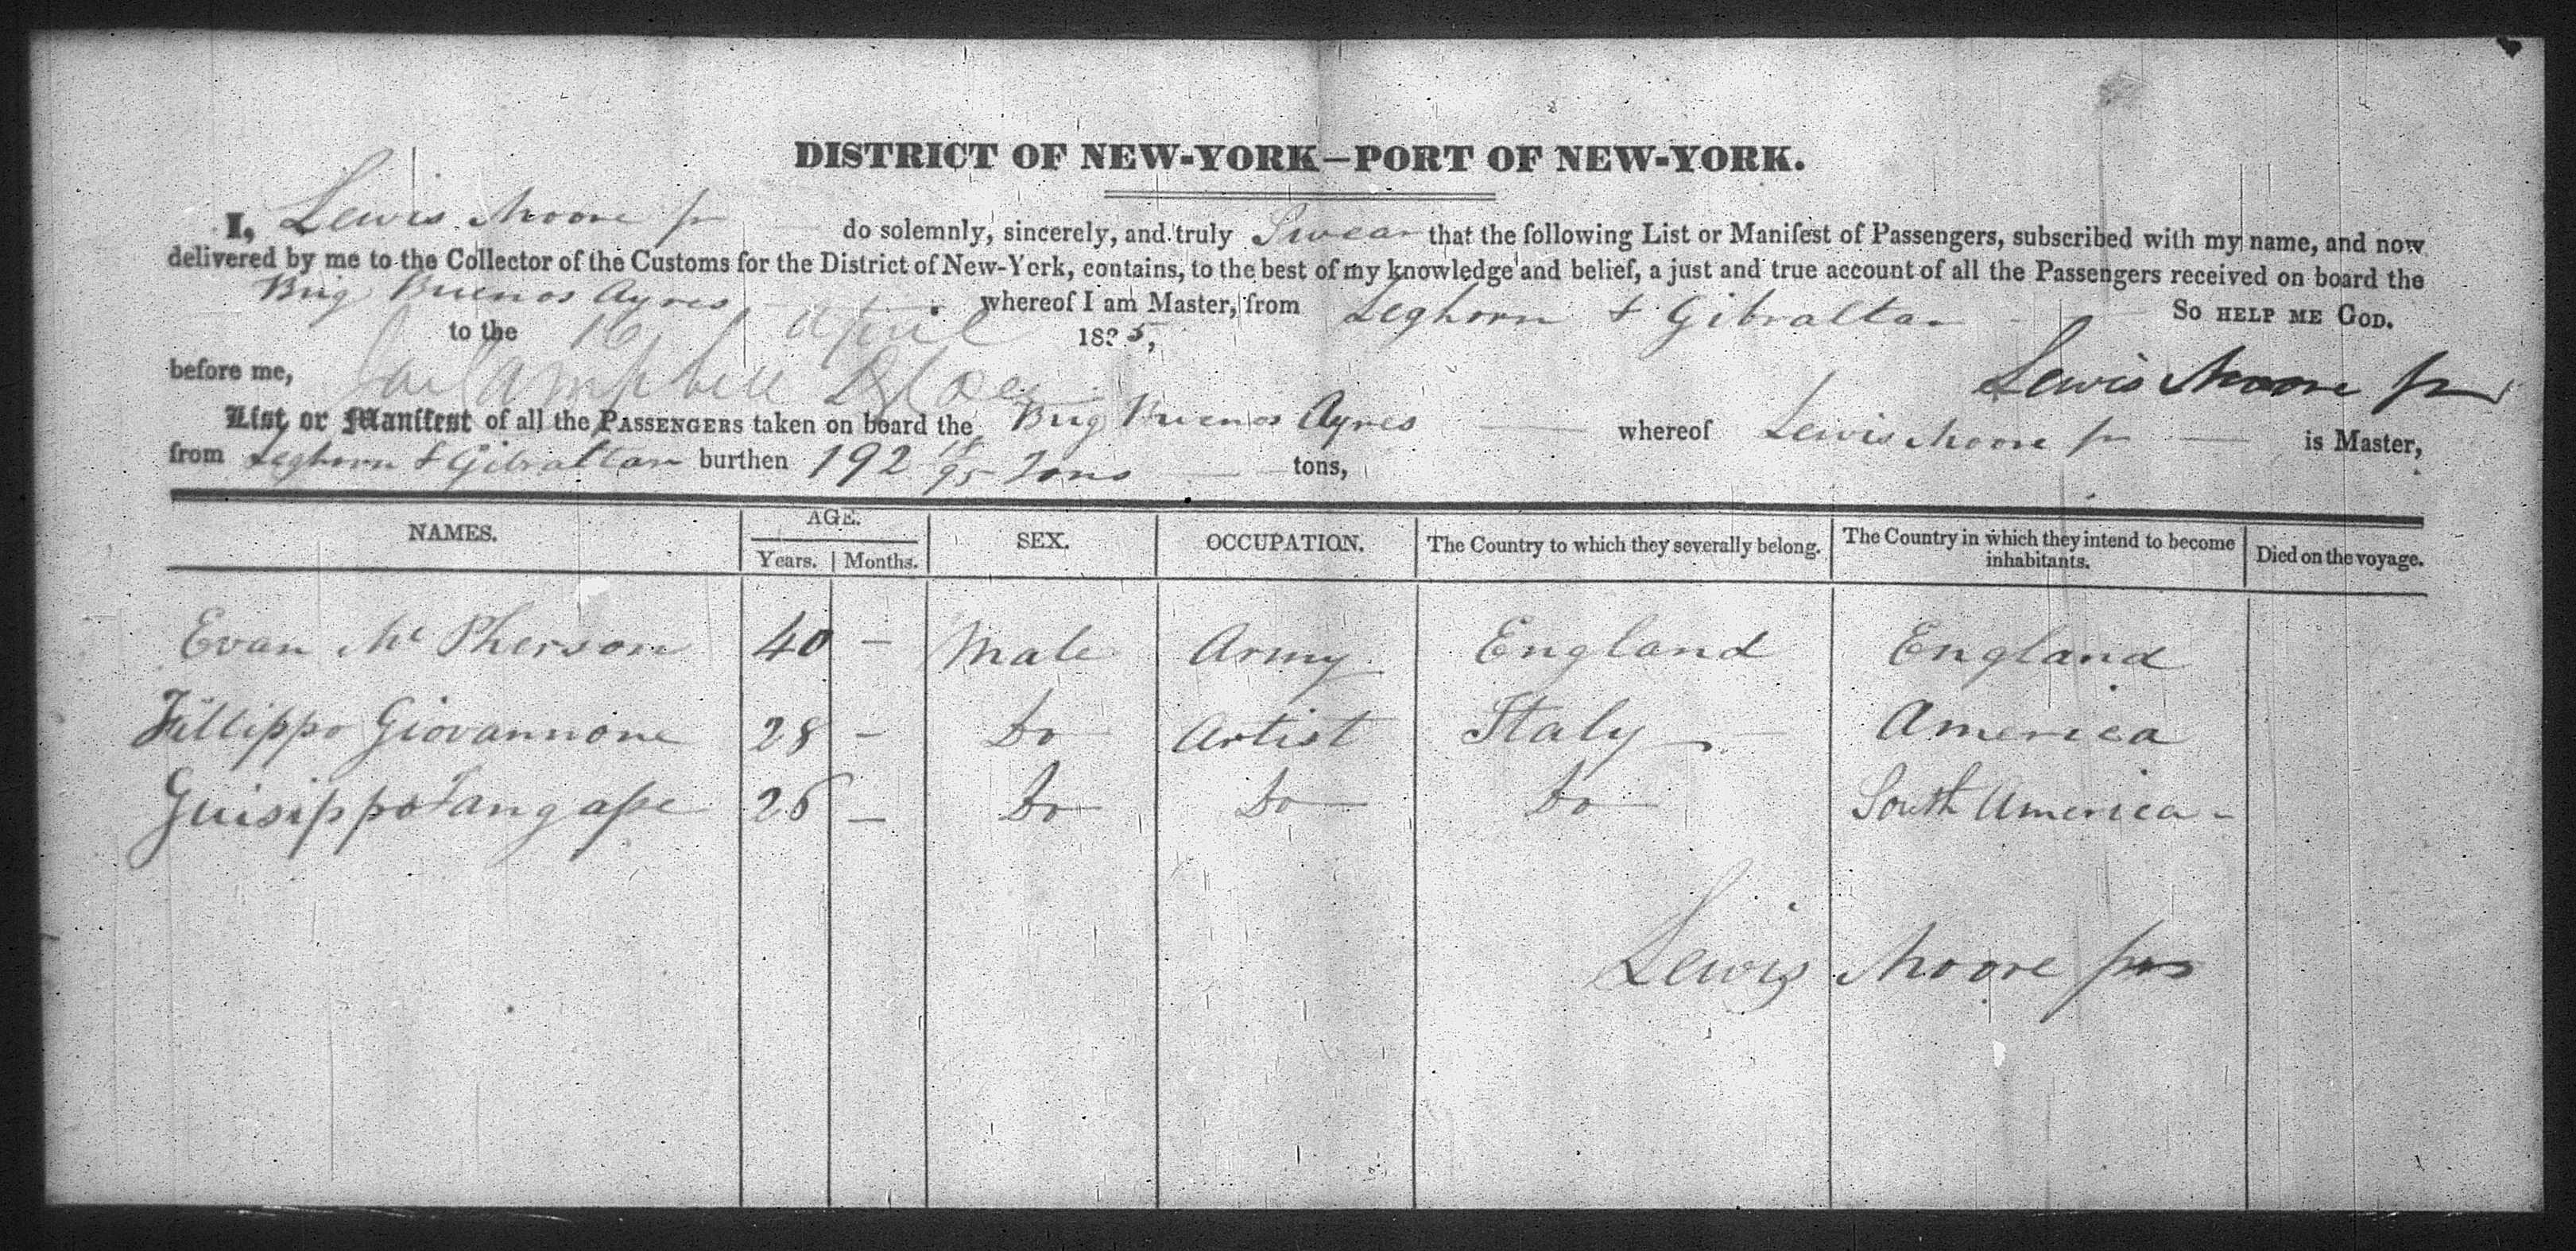 DISTRICT OF NEW-YORK—PORT OF NEW-YORK.
I, Lewis Moore jr do solemnly, sincerely, and truly Swear that the following List or Manifest of Passengers, subscribed with my name, and now
delivered by me to the Collector of the Customs for the District of New-York, contains, to the best of my knowledge and belief, a just and true account of all the Passengers received on board the
Brig Buenos Ayres whereof I am Master, from Leghorn & Gibraltar So HELP ME GOD.
to the 16 April 1835,
before me, Campbell Lewis Moore jr
List or Manifest of all the PASSENGERS taken on board the Brig Buenos Ayres whereof Lewis Moore jr is Master,
from Leghorn & Gibraltar burthen 192 /95 Tons tons,
NAMES. AGE. SEX. OCCUPATION. The Country to which they severally belong. The Country in which they intend to become inhabitants. Died on the voyage.
Years. Months.
Evan Mc Pherson 40 — Male Army England England
Fillippo Giovannone 28 — Do Artist Italy — America
Guisippo 26 — Do Do Do South America -
Lewis Moore jr